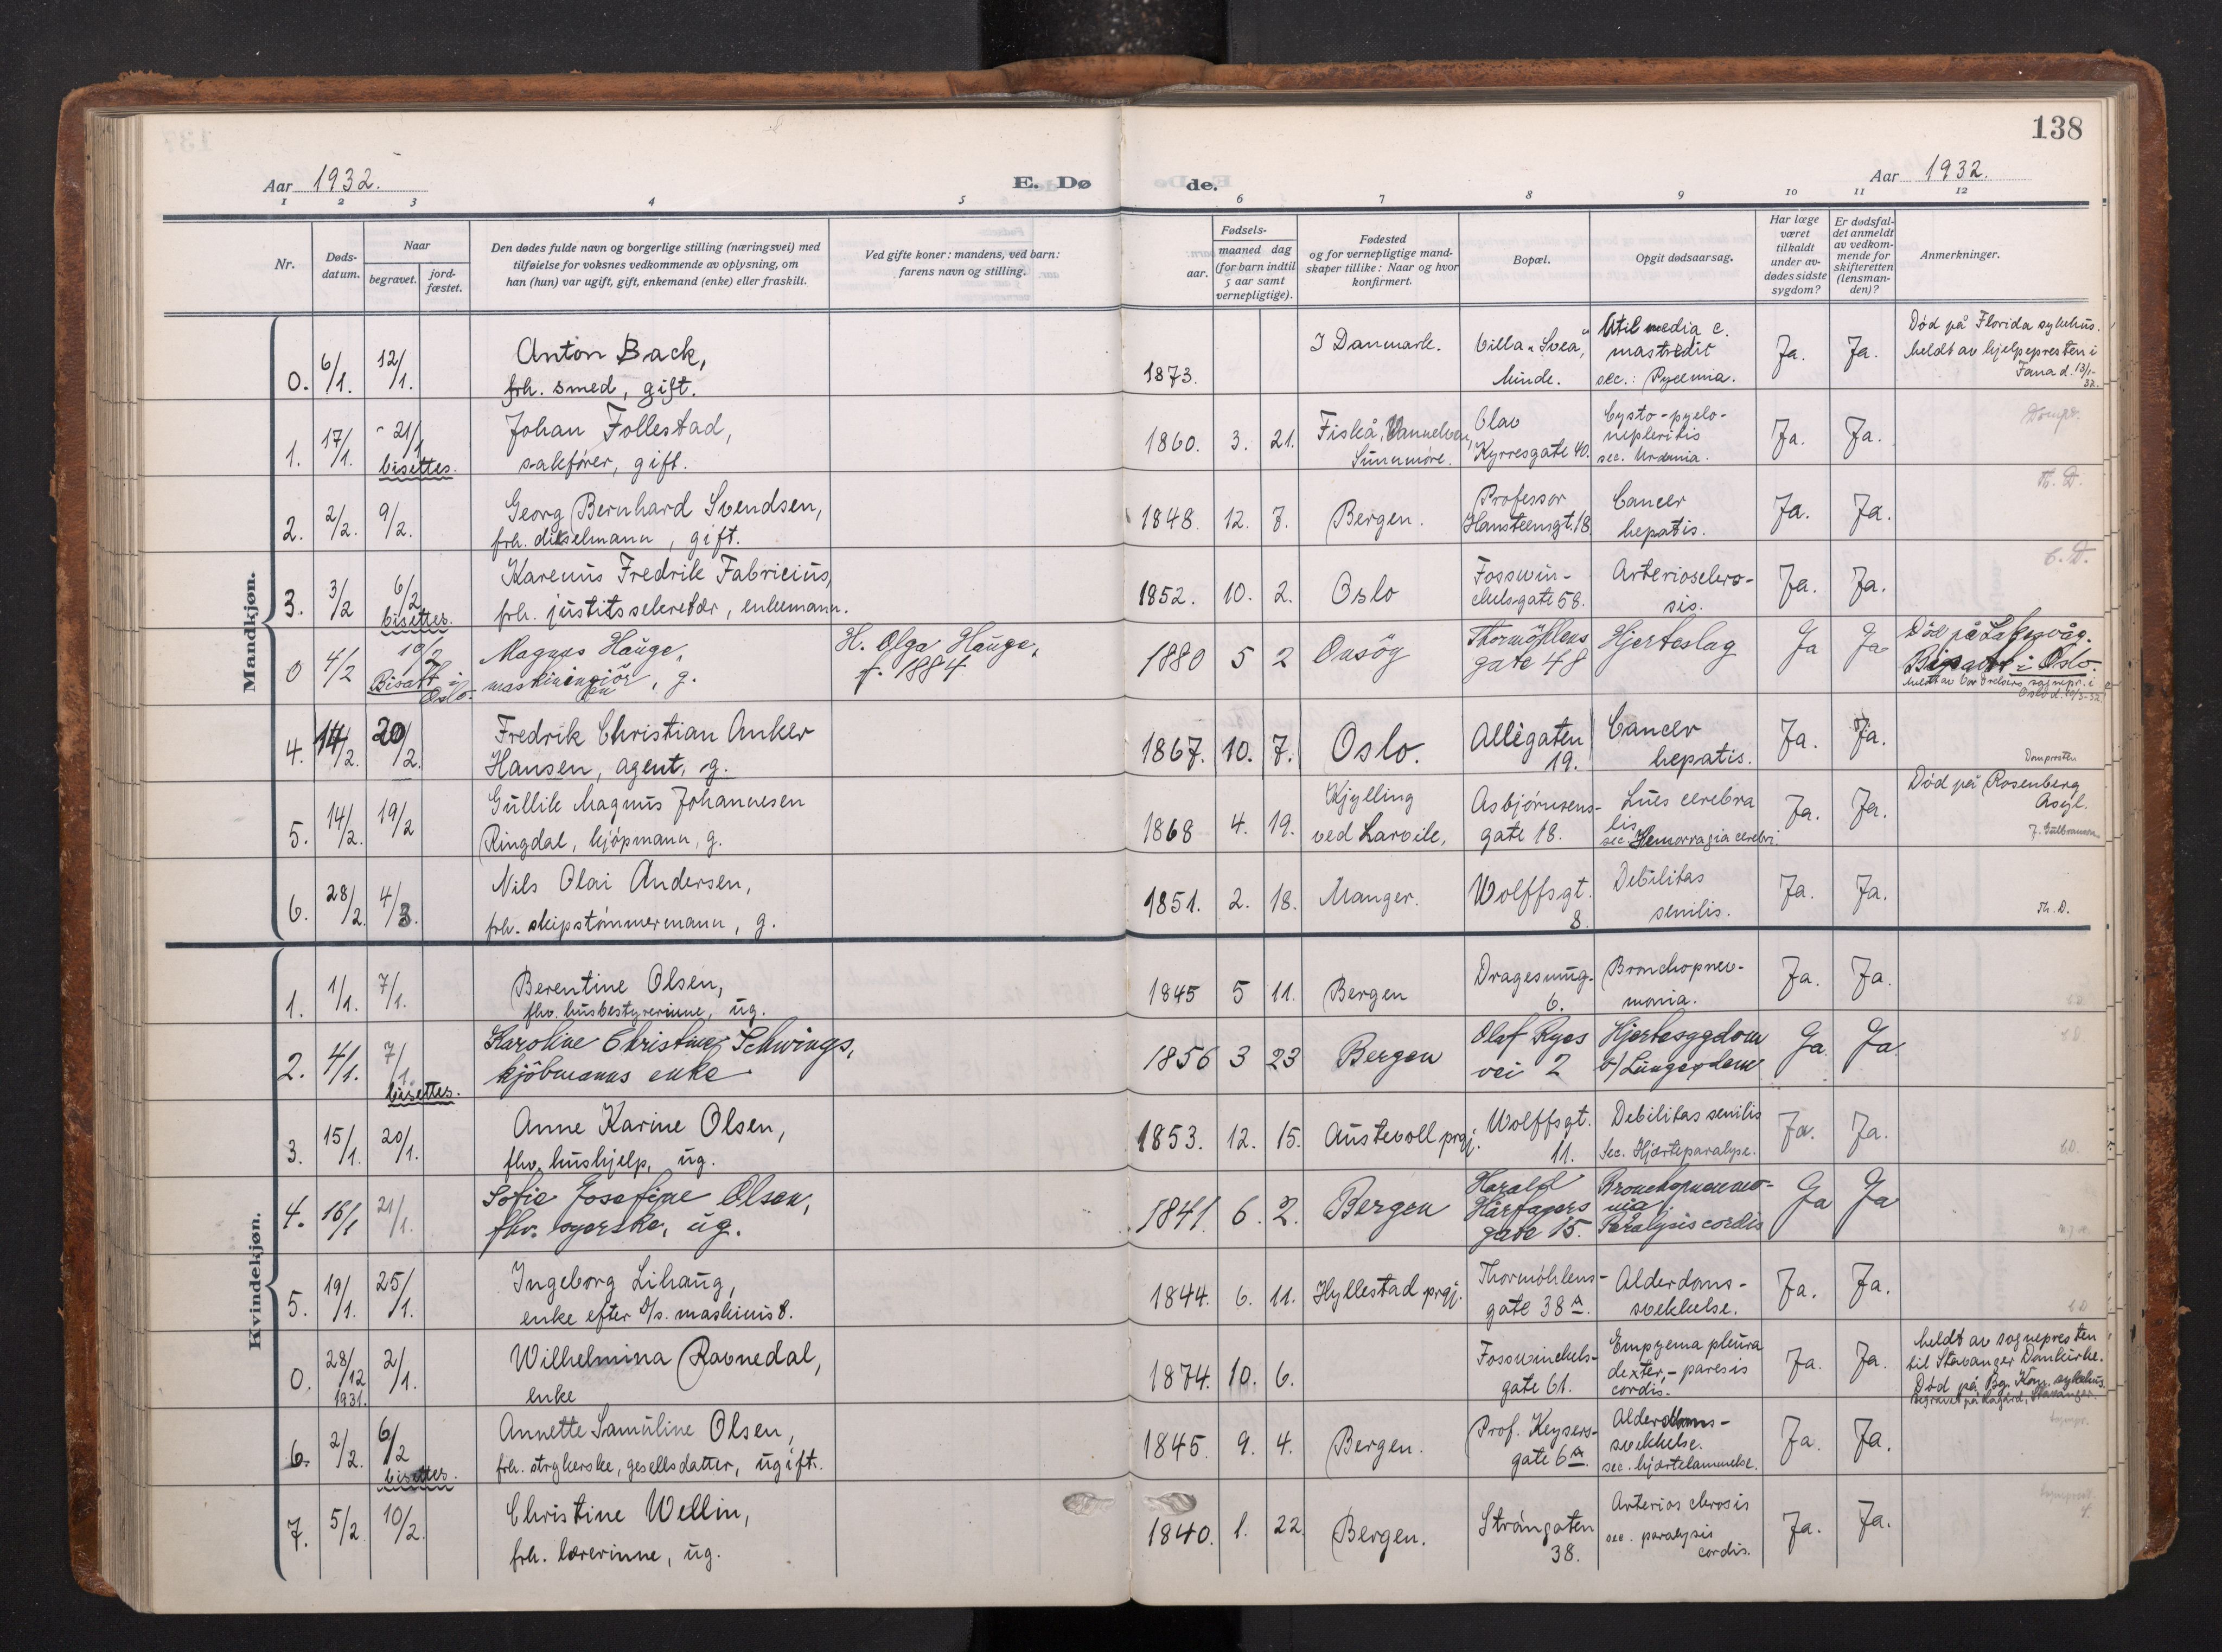 138
Aar 1932.
E. Dø
de.
Aar 1932.
1 2 3 4 5 6 7 8 9 10 11 12
Nr.
Døds-
datum.
Naar
begravet.
jord-
fæstet.
Den dødes fulde navn og borgerlige stilling (næringsvei) med
tilføielse for voksnes vedkommende av oplysning, om
han (hun) var ugift, gift, enkemand (enke) eller fraskilt.
Ved gifte koner: mandens, ved barn:
farens navn og stilling.
Fødsels-
aar.
maaned dag
(for barn indtil
5 aar samt
vernepligtige).
Fødested
og for vernepligtige mand-
skaper tillike: Naar og hvor
konfirmert.
Bopæl.
Opgit dødsaarsag.
Har læge
været
tilkaldt
under av-
dødes sidste
sygdom?
Er dødsfal-
det anmeldt
av vedkom-
mende for
skifteretten
(lensman-
den)?
Anmerkninger.
Mandkjøn.
0. 6/1. 12/1.
Anton Back,
frh. smed, gift.
1873.
I Danmark.
Villa "Svea",
Minde.
Otit media c.
mastoidit
sec.: Pyæmia.
Ja. Ja.
Død på Florida sykehus.
Meldt av hjelpepresten i
Fana d. 13/1-
32.
1. 17/1. 21/1
bisettes.
Johan Follestad,
sakfører, gift.
1860. 3. 21.
Fiskå, Vannelven,
Sunnmøre.
Olav
Kyrresgate 40.
Cysto-pyelo-
nephritis
sec. Urämia.
Ja. Ja.
Dompr.
2. 2/2. 9/2.
Georg Bernhard Svendsen,
frh. dikselmann, gift.
1848. 12. 7.
Bergen.
Professor
Hansteensgt. 18
Cancer
hepatis.
Ja. Ja.
Th. D.
3. 3/2 6/2
bisettes.
Karenus Fredrik Fabricius,
frh. justitssekretær, enkemann.
1852. 10. 2.
Oslo
Fosswin-
ckelsgate 58.
Arterioselero-
sis.
Ja. Ja.
C. D.
0 4/2 10/2
Bisatt i
Oslo.
Magnus Hauge,
maskiningiör, g.
en
H. Olga Hauge,
f. 1884
1880 5 2
Onsöy
Thormöhlens
gate 48
Hjerteslag
Ja Ja
Död på Laksevåg.
Bisatt i Oslo.
4. 14/2. 20/2.
Fredrik Christian Anker
Hansen, agent, g.
1867. 10. 7.
Oslo.
Allégaten
19.
Cancer
hepatis.
Ja. Ja.
Domprosten
5. 14/2. 19/2
Gullik Magnus Johannesen
Ringdal, kjøpmann, g.
1868 4. 19.
Kjylling
ved Larvik,
Asbjørnsens-
gate 18.
Lues cerebra
lis
sec. Hemorragia cerebri.
Ja. Ja.
Død på Rosenberg
Asyl.
J. Gulbransen
6. 28/2. 4/3.
Nils Olai Andersen,
frh. skipstømmermann, g.
1851. 2. 18.
Manger.
Wolffsgt.
8.
Debilitas
senilis.
Ja. Ja.
Th. D.
Kvindekjøn.
1. 1/1. 7/1.
Berentine Olsen,
fhv. husbestyrerinne, ug.
1845 5 11.
Bergen
Dragesmug.
6.
Bronchopneu-
monia.
Ja. Ja.
2. 4/1. 7/1
bisettes.
Karoline Christine Schwings,
kjöbmanns enke
1856 3 23
Bergen
Olaf Ryes
vei 2
Hjertesygdom
o/Lungeødem
Ja. Ja.
3. 15/1. 20/1.
Anne Karine Olsen,
fhv. hushjelp, ug.
1853. 12. 15.
Austevoll prgj.
Wolffsgt.
11.
Debilitas senilis
Sec. Hjærteparalyse.
Ja. Ja.
4. 16/1 21/1.
Sofie Josefine Olsen,
fhv. syerske, ug.
1841. 6. 2.
Bergen
Harald
Hårfagers
gate 15.
Bronchopneumo-
nia.
Paralysis cordis
Ja Ja
5. 19/1. 25/1.
Ingeborg Lihaug,
enke efter d/s. maskinis8.
1844. 6. 11.
Hyllestad prgj.
Thormöhlens-
gate 38 a.
Alderdoms-
svekkelse.
Ja. Ja.
0. 28/12 2/1.
1931.
Wilhelmina Ravnedal,
enke
1874. 10. 6.
Fosswinckels-
gate 61.
Empyema pleura
dexter,-paresis
cordis.
Ja. Ja.
Meldt av sognepresten
til Stavanger Domkirke.
Død på Bg. Kom. sykehus.
6. 2/2. 6/2
bisettes.
Annette Samuline Olsen,
frh. strykerske, gesellsdatter, ugift.
1845. 9. 4.
Bergen.
Prof. Keysers-
gate 6 a.
Alderdoms-
svekkelse.
sec. hjærtelammelse.
Ja. Ja.
7. 5/2. 10/2.
Christine Wellin,
frh. lærerinne, ug.
1840. 1. 22.
Bergen.
Strangaten
38.
Arteriosclerosis
sec. paralysis
cordis.
Ja. Ja.